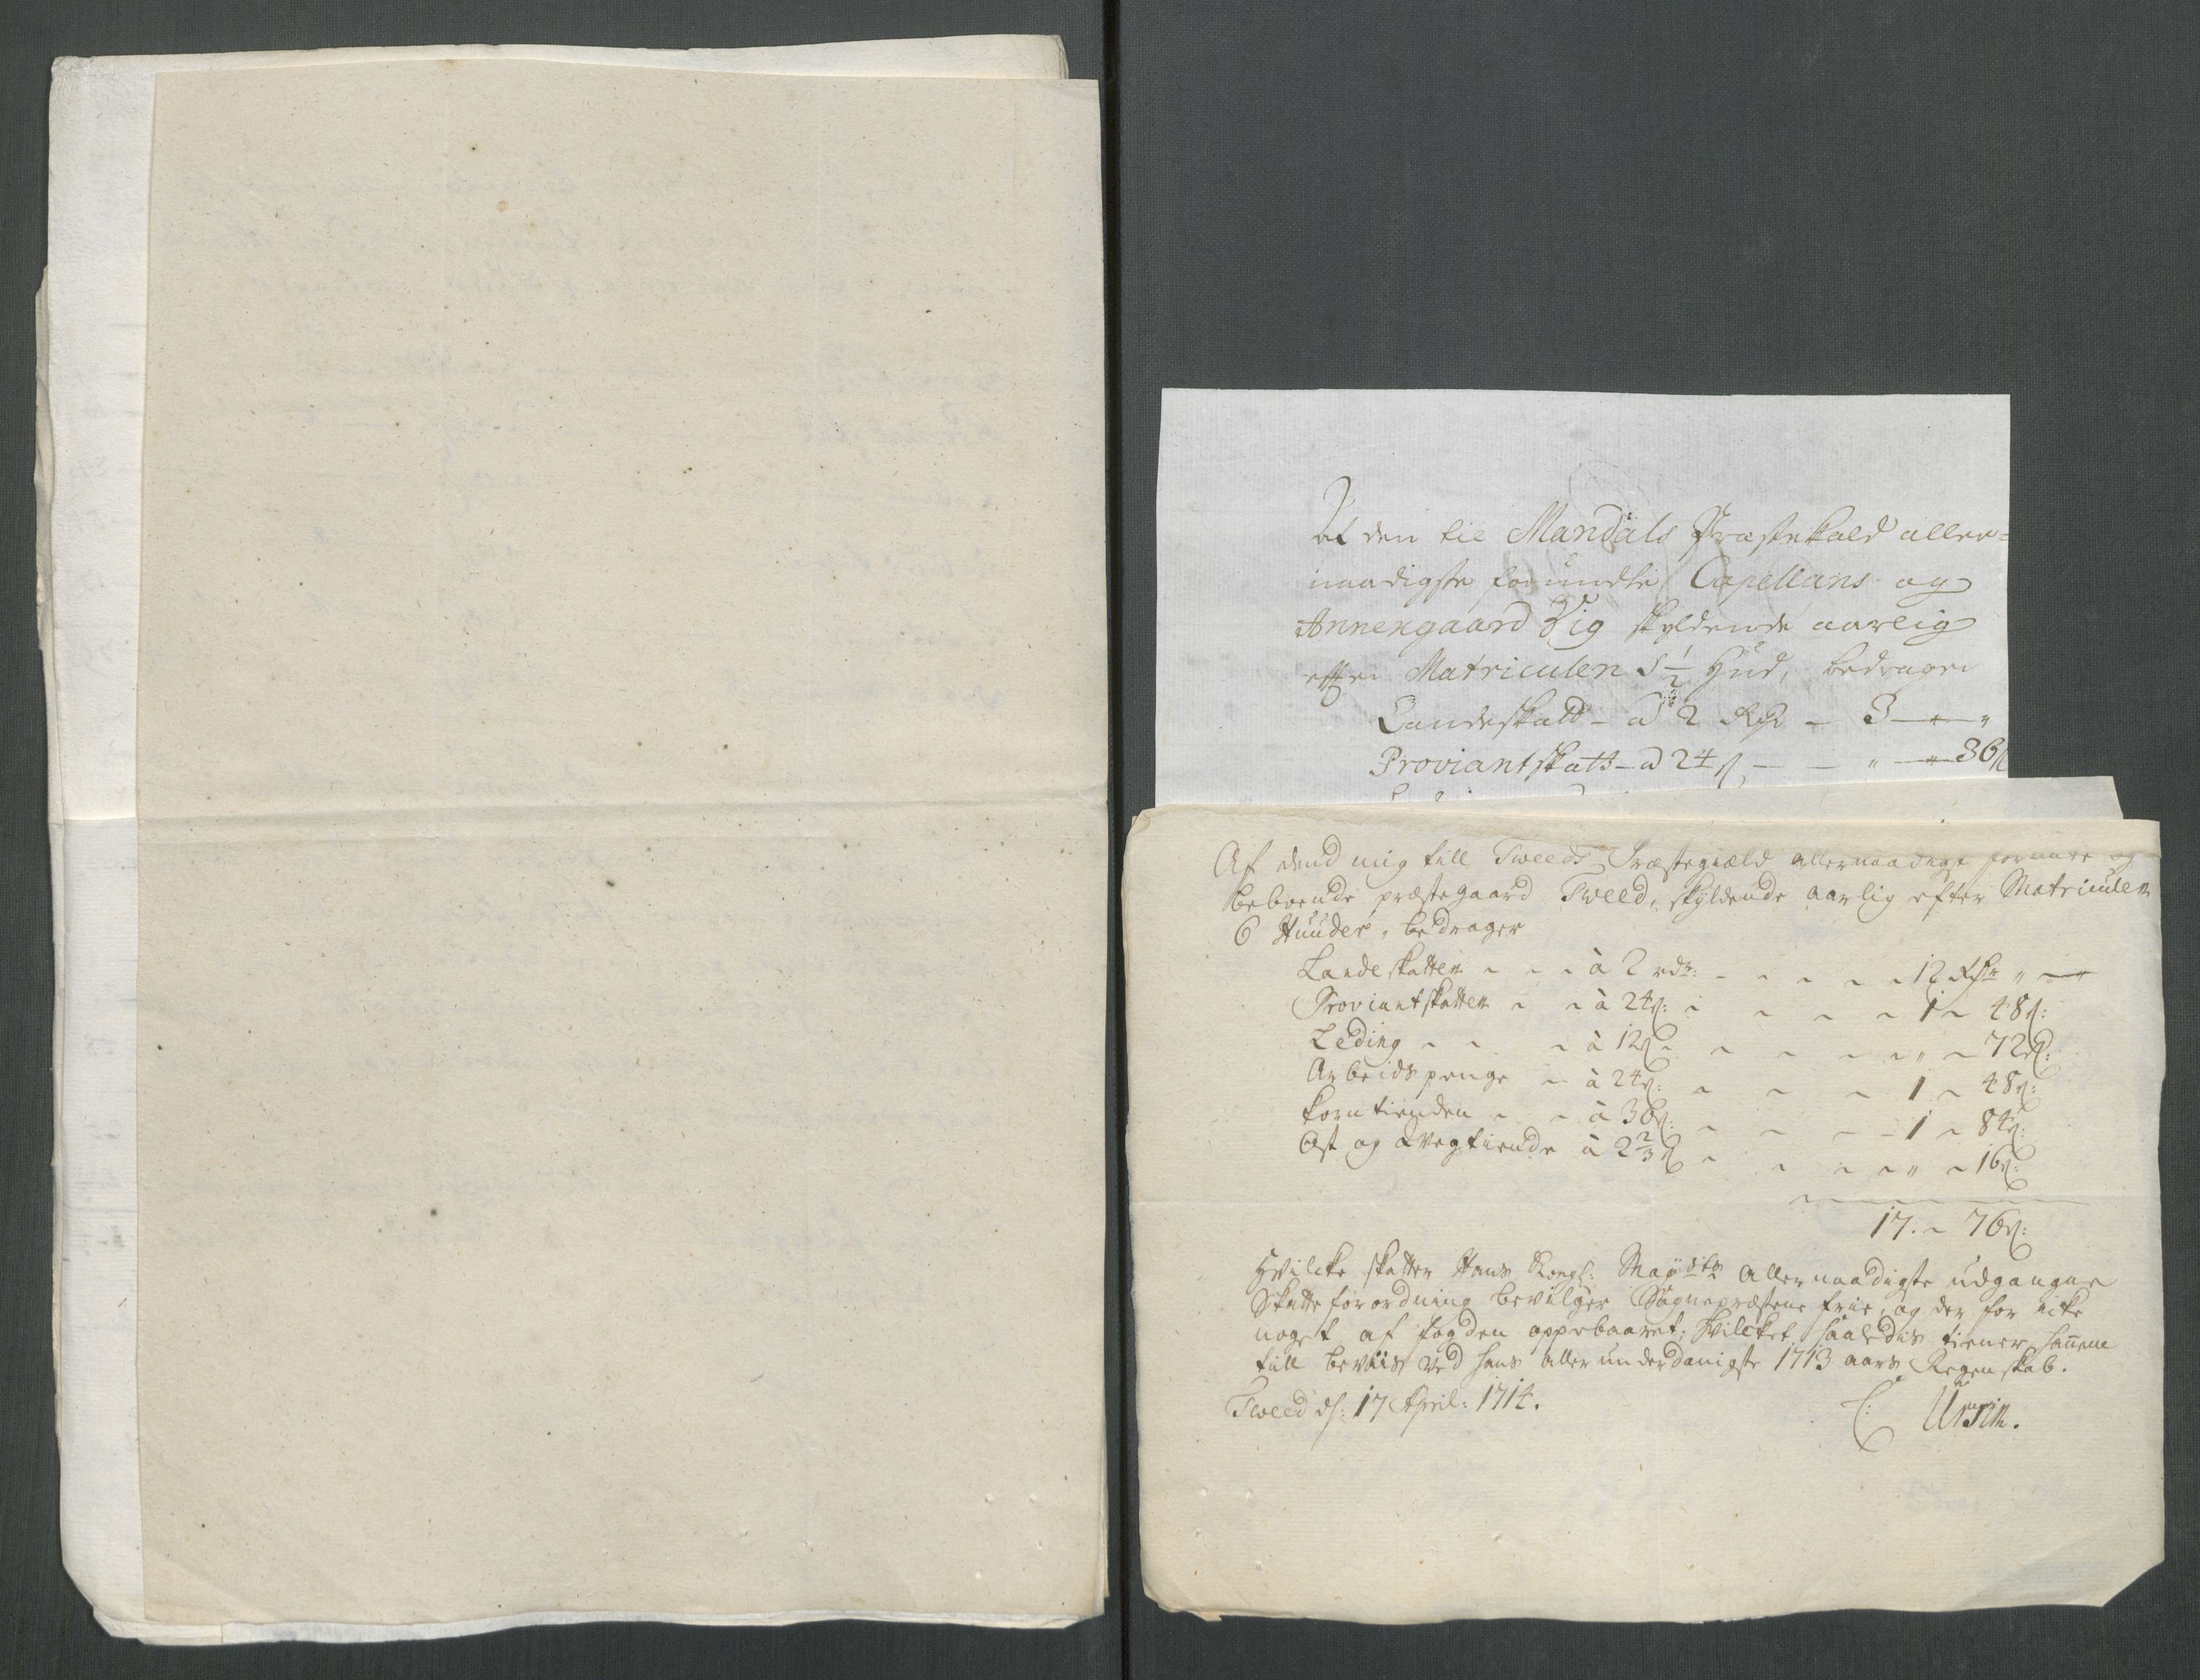 Af den til Mandals Præstekald aller=
naadigste forundte Capellans og
Annexgaard Vig skyldende aarlig
efter Matriculen 1 1/2 Hud, bedrager
Landeskatt - a 2 Rdr - 3 — "
Proviantskatt - a 24 ß - - " — 36 ß
Af dend mig till Tweeds Præstegield allernaadigst forundte og
beboende præstegaard Tweed, skyldende aarlig efter Matriculen
6 Huuder, bedrager
Landeskatten - - - à 2 rdr: - - - - - 12 Rdr " —
Proviantskatten - - à 24 ß: - - - - 1 - 48 ß:
Leding - - - à 12 ß - - - - - " - 72 ß:
Arbeidspenge - à 24 ß: - - - 1 - 48 ß:
korntienden - - à 36 ß: - - - - 1 - 84 ß:
Ost og qvegtiende à 2 2/3 ß - - - - " - 16 ß:
17. - 76 ß:
Hvilcke skatter Hans Kongl: Mayststs allernaadigste udgangne
Skatte forordning bevilger Sognepræstene frie, og der for icke
noget af fogden oppebaaret; Hvilcket saaledis tiener hannem
till beviis ved hans allerunderdanigste 1713 aars Regenskab.
Tweed d: 17 April: 1714.
C: Ursin.